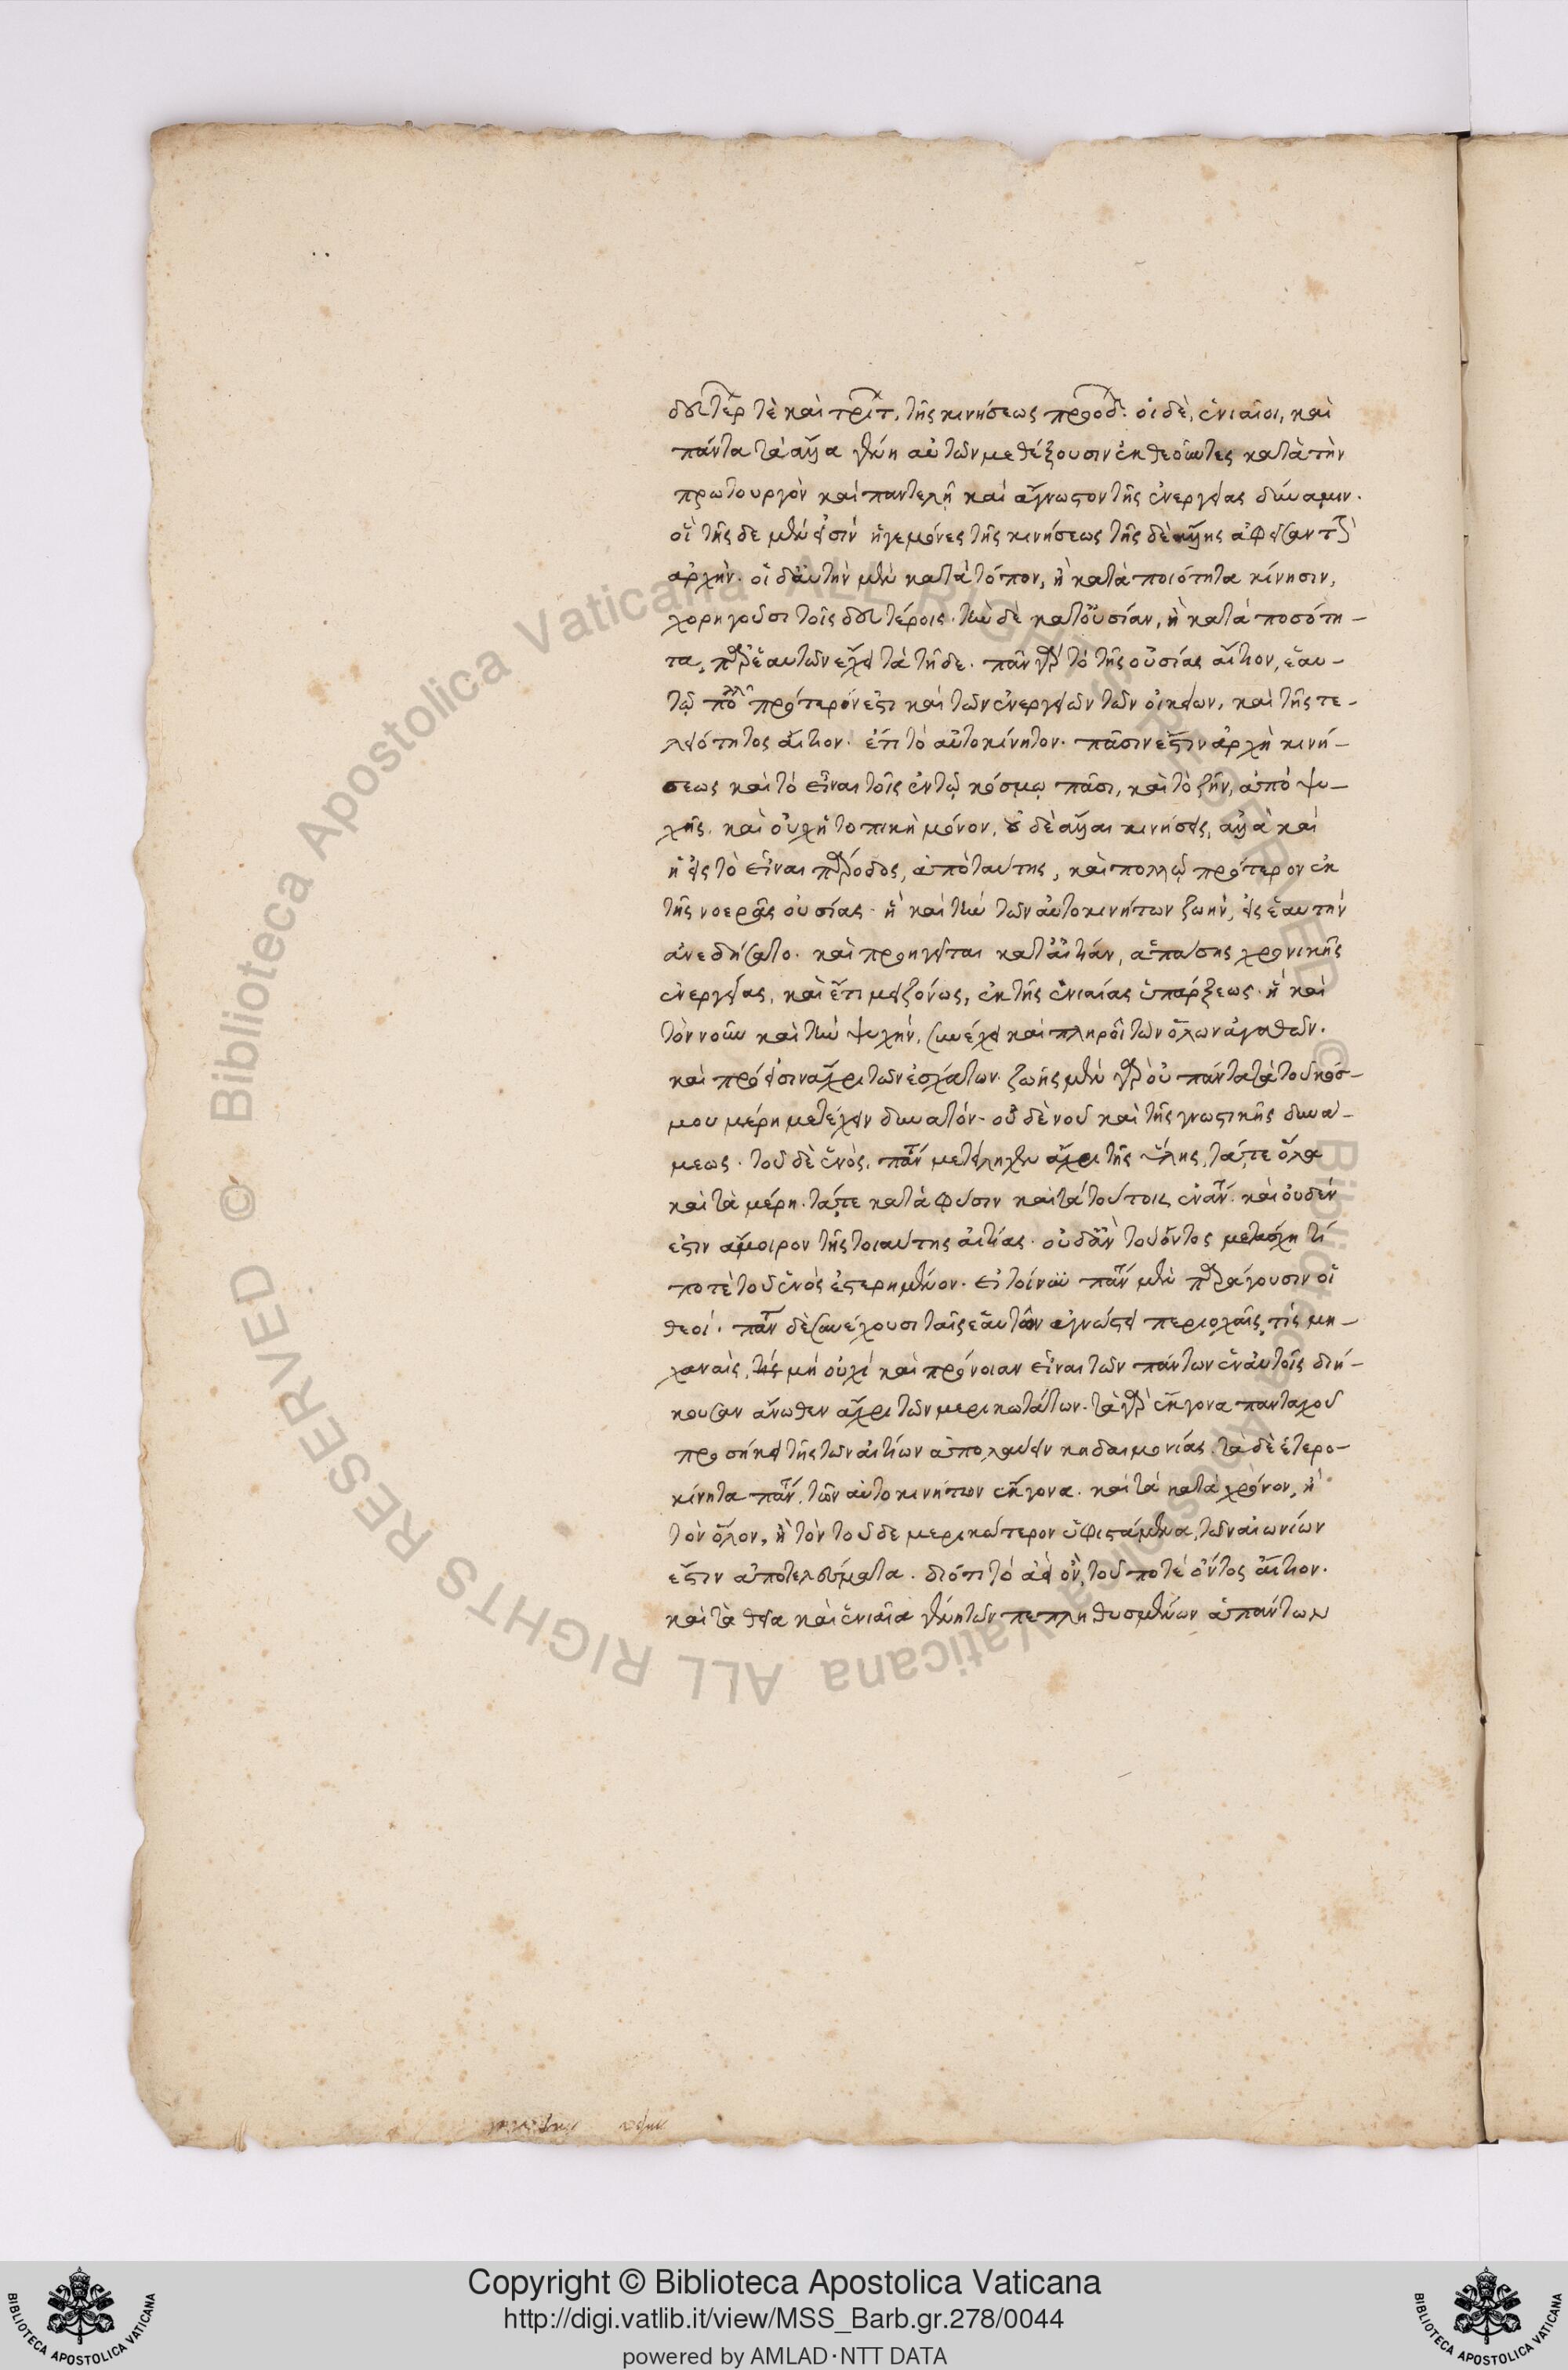 δευτέρας τὲ καὶ τρίτας, τῆς κινήσεως προόδους· οἱ δὲ, ἑνιαῖοι, καὶ
πάντα τὰ ἄλλα γένη αὐτῶν μεθέξουσιν ἐκθεοῦντες κατὰ τὴν
πρωτουργὸν καὶ παντελῆ καὶ ἄγνωστον τῆς ἐνεργείας δύναμιν.
οἳ τῆς δε μέν εἰσίν ἡγεμόνες τῆς κινήσεως τῆς δὲ ἄλλης ἀφεῖσαν τὴν
ἀρχὴν. οἳ δ' αὐτὴν μὲν κατὰ τόπον, ἢ κατὰ ποιότητα κίνησιν,
χορηγοῦσι τοῖς δευτέροις. τὴν δὲ κατ' οὐσίαν, ἢ κατὰ ποσότη-
τα, παρ' ἑαυτῶν ἔχει τὰ τῇδε. πᾶν γὰρ τὸ τῆς οὐσίας αἴτιον, ἑαυ-
τῷ πολλῷ πρότερόν ἐστι καὶ τῶν ἐνεργειῶν τῶν οἰκείων, καὶ τῆς τε-
λειότητος αἴτιον. ἔτι τὸ αὐτοκίνητον. πᾶσιν ἐστὶν ἀρχὴ κινή-
σεως καὶ τὸ εἶναι τοῖς ἐν τῷ κόσμῳ πᾶσι, καὶ τὸ ζῆν, ἀπὸ ψυ-
χῆς. καὶ οὐχ ἡ τοπικὴ μόνον, οὐδὲ αἱ ἄλλαι κινήσεις, ἀλλὰ καὶ
ἡ εἰς τὸ εἶναι πάροδος, ἀπὸ ταύτης, καὶ πολλῷ πρότερον ἐκ
τῆς νοερᾶς οὐσίας· ἣ καὶ τὴν τῶν αὐτοκινήτων ζωὴν, εἰς ἑαυτὴν
ἀνεδήσατο. καὶ προηγεῖται κατ' αἰτίαν, ἁπάσης χρονικῆς
ἐνεργείας, καὶ ἔτι μειζόνως, ἐκ τῆς ἑνιαίας ὑπάρξεως. ἣ καὶ
τὸν νοῦν καὶ τὴν ψυχήν, συνέχει καὶ πληροῖ τῶν ὅλων ἀγαθῶν.
καὶ πρόεισιν ἄχρι τῶν ἐσχάτων. ζωῆς μὲν γὰρ οὐ πάντα τὰ τοῦ κόσ-
μου μέρη μετέχειν δυνατόν. οὐδὲ νοῦ καὶ τῆς γνωστικῆς δυνά-
μεως. τοῦ δὲ ἑνὸς, πάντα μετείληχεν ἄχρι τῆς ὕλης, τά, τε ὅλα
καὶ τὰ μέρη. τά, τε κατὰ φύσιν καὶ τὰ τούτοις ἐναντία. καὶ οὐδέν
ἐστιν ἄμοιρον τῆς τοιαύτης αἰτίας. οὐδ' ἂν τοῦ ὄντος μετάσχῃ τί
ποτὲ τοῦ ἑνὸς ἐστερημένον. εἰ τοίνυν πάντα μὲν παράγουσιν οἱ
θεοί. πάντα δὲ συνέχουσι ταῖς ἑαυτῶν ἀγνώστοις περιοχαῖς, τίς μη-
χαναὶς, τίς μὴ οὐχὶ καὶ πρόνοιαν εἶναι τῶν πάντων ἐν αὐτοῖς διή-
κουσαν ἄνωθεν ἄχρι τῶν μερικωτάτων. τὰ γὰρ ἔγγονα πανταχοῦ
προσήκει τῆς τῶν αἰτίων ἀπολαύειν κηδαιμονίας. τὰ δὲ ἑτερο-
κίνητα πάντα, τῶν αὐτοκινήτων ἔγγονα. καὶ τὰ κατὰ χρόνον, ἢ
τὸν ὅλον, ἢ τὸν τοῦ δε μερικώτερον ὑφιστάμενα, τῶν αἰωνίων
ἐστὶν ἀποτελέσματα. διότι τὸ ἀεὶ ὂν, τοῦ ποτὲ ὄντος αἴτιον.
καὶ τὰ θεῖα καὶ ἑνιαῖα γένη τῶν πεπληθυσμένων ἁπάντων
Copyright © Biblioteca Apostolica Vaticana
http://digi.vatlib.it/view/MSS_Barb.gr.278/0044
powered by AMLAD·NTT DATA
BIBLIOTECA APOSTOLICA VATICANA
BIBLIOTECA APOSTOLICA VATICANA
© Biblioteca Apostolica Vaticana ALL RIGHTS RESERVED © Biblioteca Apostolica Vaticana ALL RIGHTS RESERVED